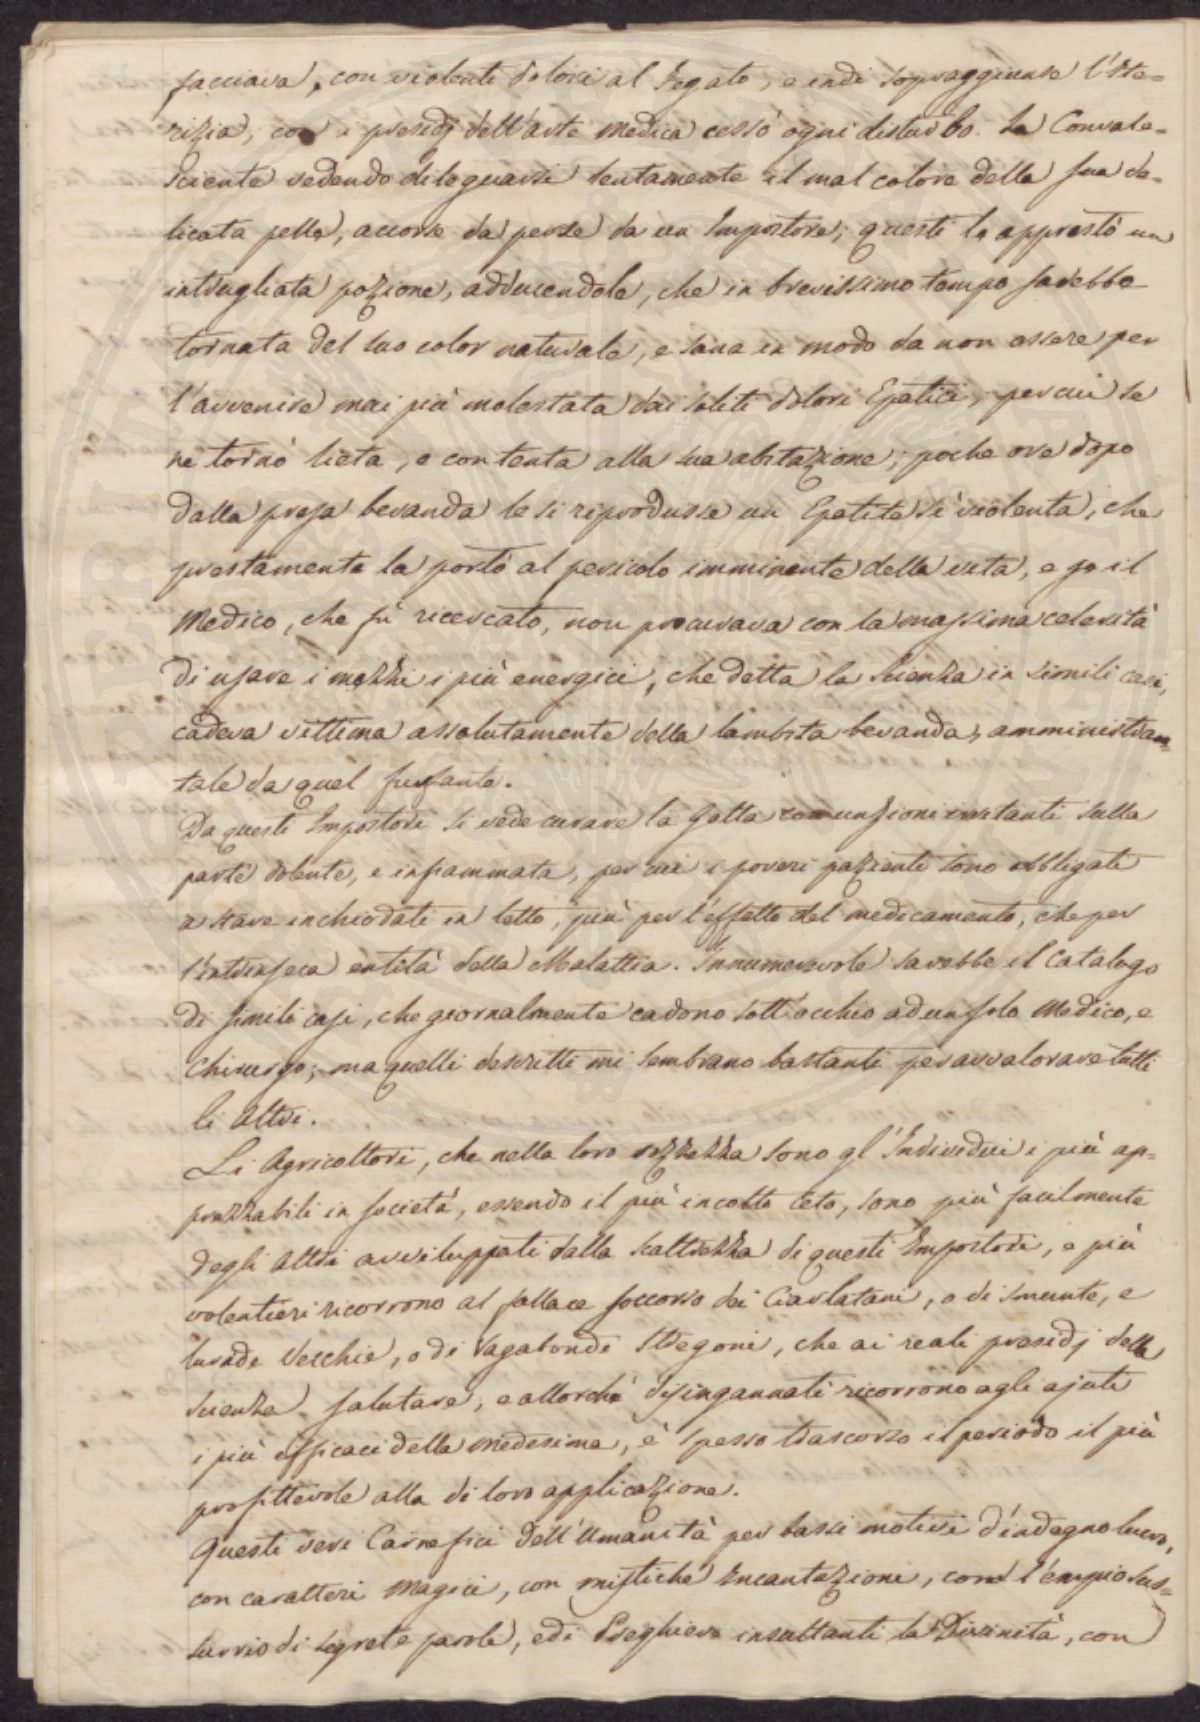 facciava, con violenti dolori al Fegato, e indi sopraggiunse l'Ite-
rizia, con i presidj dell'arte medica cessò ogni disturbo. La Convale-
sciente vedendo dileguarsi lentamente il mal colore della sua de-
licata pelle, accorse da perse da un Impostore; questi le apprestò un
intrugliata pozione, adducendole, che in brevissimo tempo sarebbe
tornata del suo color naturale, e sana in modo da non essere per
l'avvenire mai più molestata dai soliti dolori Epatici, per cui se
ne tornò lieta, e contenta alla sua abitazione; poche ore dopo
dalla presa bevanda le si riprodusse un Epatite sì violenta, che
prestamente la portò al pericolo imminente della vita, e se il
Medico, che fù ricercato, non procurava con la massima celerità
di usare i mezzi i più energici, che detta la Scienza in simili casi,
cadeva vittima assolutamente della lambita bevanda, amministra-
tale da quel furfante.
Da questi Impostori si vede curare la Gotta con unzioni irritanti sulla
parte dolente, e infiammata, per cui i poveri pazienti sono obbligati
a stare inchiodati in letto, più per l'effetto del medicamento, che per
l'intrinseca entità della Malattia. Innumerevole sarebbe il Catalogo
di simili casi, che giornalmente cadono sott'occhio ad un solo Medico, e
Chirurgo; ma quelli descritti mi sembrano bastanti per avvalorare tutti
li Altri.
Li Agricoltori, che nella loro rozzezza sono gl'Individui i più ap-
prezzabili in società, essendo il più incolto ceto, sono più facilmente
degli Altri avviluppati dalla scaltrezza di questi Impostori, e più
volentieri ricorrono al fallace soccorso dei Ciarlatani, o di smunte, e
luride Vecchie, o di Vagabondi Stregoni, che ai reali presidj della
scienza salutare, e allorchè disingannati ricorrono agli ajuti
i più efficaci della medesima, è spesso trascorso il periodo il più
profittevole alla di loro applicazione.
Questi veri Carnefici dell'Umanità per bassi motivi d'indegno lucro,
con caratteri magici, con mistiche Incantazioni, con l'empio sus-
surrio di segrete parole, e di Preghiere insultanti la Divinità, con